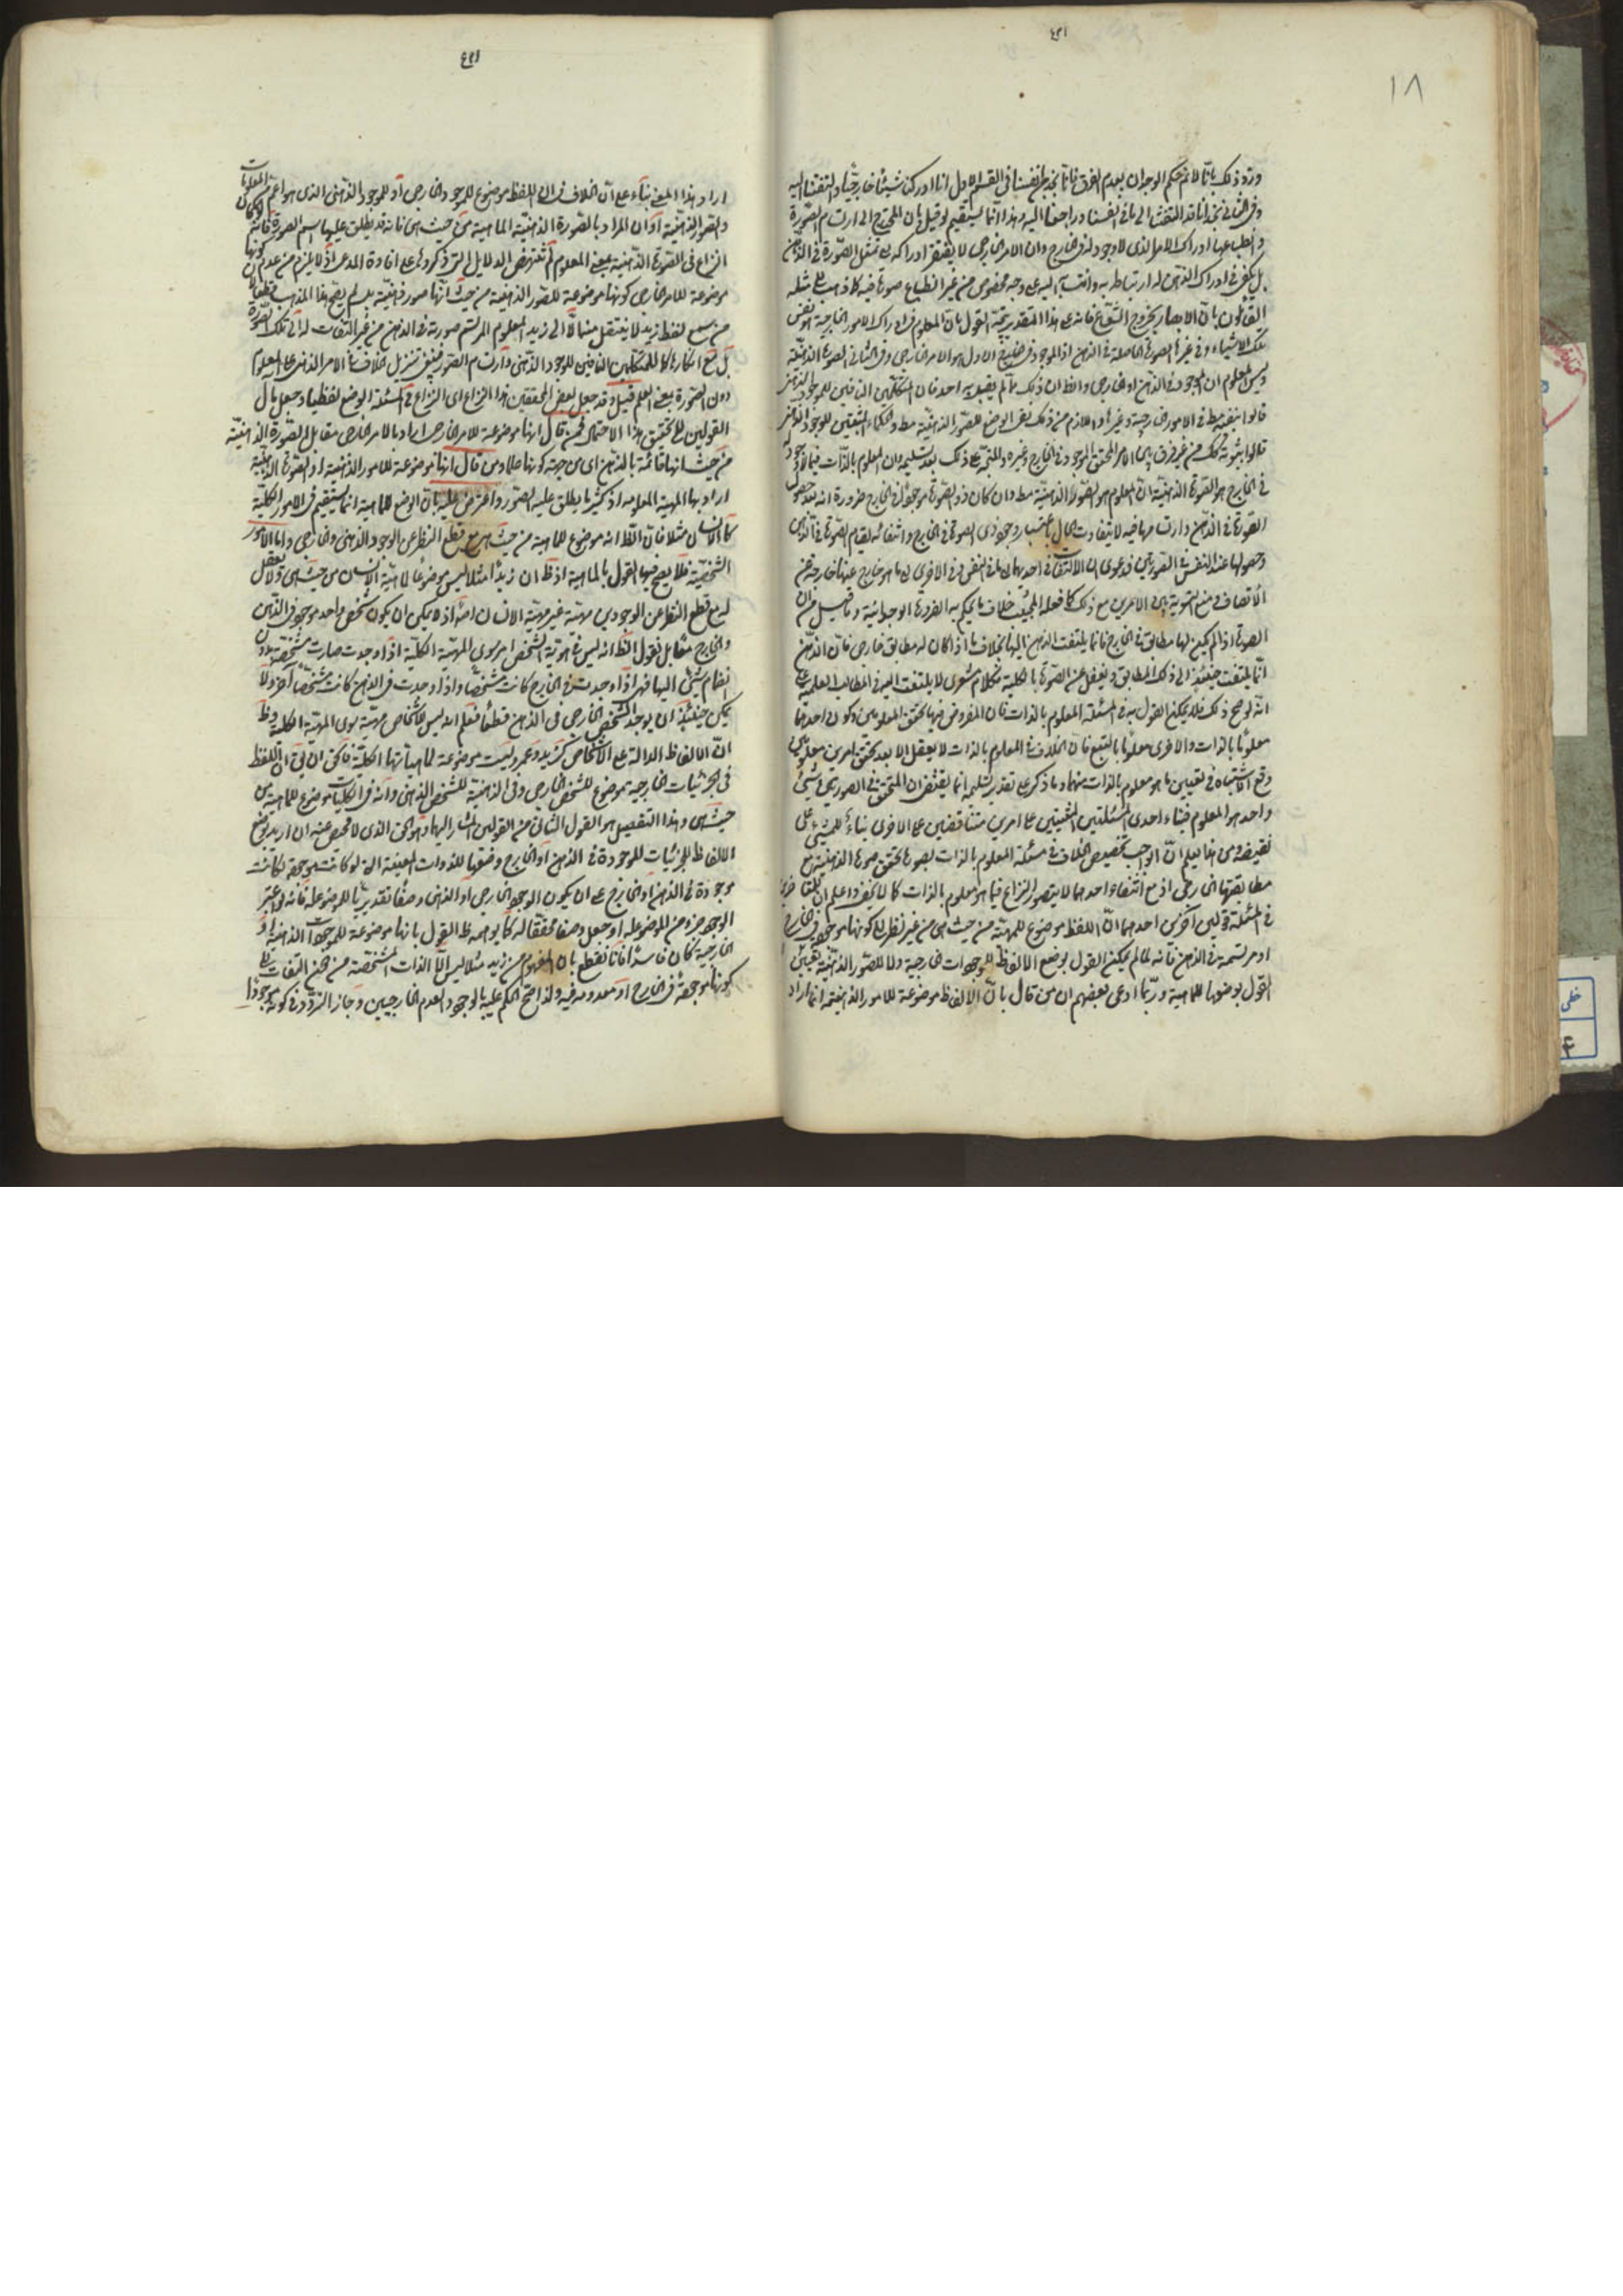 ١٨
ورد ذلك بانا لا نم حكم الوجدان بعدم الفرق فانا نجد من انفسنا في القسم الاول انا ادركنا شيئا خارجيا والتفتنا اليه
وفي الثاني نجد انا قد التفتنا الى ما في انفسنا وراجعنا اليه وهذا انما يستقيم لو قيل بان المحوج الى ارتسام الصورة
ادراك الامر الذي لا وجود له في الخارج وان الامر الخارجي لا يفتقر ادراكه الى تمثل الصورة في الذهن
بل يكفي في ادراك الذهن له ارتباطه به وانتسابه اليه على وجه مخصوص من غير انطباع صورة فيه كما ذهب الى مثله
القائلون بان الابصار بخروج الشعاع فانه على هذا التقدير يتجه القول بان المعلوم في ادراك الامور الخارجية هو نفس
تلك الاشياء وفي غيرها الصورة الحاصلة في الذهن اذ الموجود في الاول هو الامر الخارجي وفي الثاني الصورة الذهنية
وليس المعلوم ان الموجود في الذهن او الخارج والظ ان ذلك مما لم يقل به احد فان المتكلمين النافين للوجود الذهني
قالوا بنفيه مط في الامور الخارجية وغيرها واللازم من ذلك نفي الوضع للصور الذهنية مط والحكماء المثبتين للوجود الذهني
قالوا بثبوته كك من غير فرق بين الامر المحقق الموجود في الخارج وغيره والمتجه على ذلك بعد تسليم ان المعلوم بالذات فيما لا وجود له
في الخارج هو الصورة الذهنية ان المعلوم هو الصورة الذهنية مط وان كان ذو الصورة موجودا في الخارج ضرورة انه بعد حصول
الصورة في الذهن وارتسامها فيه لا يتفاوت الحال باعتبار وجود ذي الصورة في الخارج وانتفائه لقيام الصورة في الذهن
وحصولها عند النفس في الصورتين فدعوى ان الالتفات في احديهما الى ما في النفس وفي الاخرى الى ما هو خارج عنها خارجة عن
الانصاف ومنع التسوية بين الامرين مع ذلك كما فعله المجيب خلاف ما يحكم به الضرورة الوجدانية وما قيل من ان
الصورة اذا لم يكن لها مطابق في الخارج فانما يلتفت الذهن اليها بخلاف ما اذا كان له مطابق خارجي فان الذهن
انما يلتفت حينئذ الى ذلك المطابق ويغفل عن الصورة بالكلية فكلام شعري لا يلتفت اليه في المطالب العلمية على
انه لو صح ذلك فلا يمكن القول به في مسئلة المعلوم بالذات فان المفروض فيها تحقق المعلومين وكون احدهما
معلوما بالذات والاخرى معلوما بالتبع فان الخلاف في المعلوم بالذات لا يعقل الا بعد تحقق امرين معلومين
وقع الاشتباه في تعيين ما هو معلوم بالذات منهما وما ذكر على تقدير تسليمه انما يقتضي ان المتحقق في الصورتين شئ
واحد هو المعلوم فبناء احدى المسئلتين المبتنيتين على امرين متناقضين على الاخرى بناء للشئ على
نقيضه ومن هنا يعلم ان الواجب تخصيص الخلاف في مسئلة المعلوم بالذات بصورة تحقق صورة الذهنية مع
مطابقتها الخارجي اذ مع انتفاء احدهما لا يتصور النزاع فيما هو معلوم بالذات كما لا يخفى واعلم ان
في المسئلة قولين آخرين احدهما ان اللفظ موضوع للمهية من حيث هي من غير نظر الى كونها موجودة في الخارج
او مرتسمة في الذهن فانه لما لم يمكن القول بوضع الالفاظ للموجودات الخارجية ولا للصور الذهنية تعين
القول بوضعها للماهية وربما ادعى بعضهم ان من قال بان الالفاظ موضوعة للامور الذهنية انما اراد
اراد هذا المعنى بناء على ان الخلاف في ان اللفظ موضوع للموجود الخارجي او للموجود الذهني الذي هو اعم من المعلومات
والصور الذهنية او ان المراد بالصورة الذهنية الماهية من حيث هي فانه قد يطلق عليها اسم الصورة فانه لو كان
النزاع في الصورة الذهنية بمعنى المعلوم لم تنتهض الدلايل التي ذكروها على افادة المدعى اذ لا يلزم من عدم كونها
موضوعة للامر الخارجي كونها موضوعة للصور الذهنية من حيث انها صور ذهنية بل لم يصح هذا المذهب قطعا لان
من سمع لفظ زيد لا ينتقل منه الا الى زيد المعلوم المرتسم صورته في الذهن من غير التفات له الى تلك الصورة
بل مع انكارها كما للمتكلمين النافين للوجود الذهني وارتسام الصور فينبغي تنزيل الخلاف في الامر الذهني على المعلوم
دون الصورة بمعنى العلم قيل وقد جعل بعض المحققين هذا النزاع اي النزاع في مسئلة الوضع لفظيا وجعل مآل
القولين الى تحقيق هذا الاحتمال فمن قال انها موضوعة للامر الخارجي اراد بالامر الخارجي مقابل الصورة الذهنية
من حيث انها قائمة بالذهن اي من جهة كونها علما ومن قال انها موضوعة للامور الذهنية او الصورة الذهنية
اراد بها المهية المعلومة اذ كثيرا ما يطلق عليها الصور واعترض عليه بان الوضع للماهية انما يستقيم في الامور الكلية
كالانسان مثلا فان الظ انه موضوع للماهية من حيث هي مع قطع النظر عن الوجود الذهني والخارجي واما الامور
الشخصية فلا يصح فيها القول بالماهية اذ ظ ان زيدا مثلا ليس موضوعا لماهية الانسان من حيث هي ولا يعقل
له مع قطع النظر عن الوجودين مهية غير مهية الانسان اذ لا يمكن ان يكون شخص واحد موجود في الذهن
والخارج مقابل نقول الظ انه ليس في هوية الشخص امر سوى المهية الكلية اذا وجدت صارت مشخصة بدون
انضمام شئ اليها فهي اذا وجدت في الخارج كانت مشخصا واذا وجدت في الذهن كانت مشخصا آخر ولا
يمكن حينئذ ان يوجد الشخص الخارجي في الذهن قطعا فعلم انه ليس للاشخاص مهية سوى المهية الكلية وظ
ان الالفاظ الدالة على الاشخاص كزيد وعمرو ليست موضوعة لماهياتها الكلية فالحق ان يق ان اللفظ
في الجزئيات الخارجية موضوع للشخص الخارجي وفي الذهنية للشخص الذهني وانه في الكليات موضوع للماهية من
حيث هي وهذا التفصيل هو القول الثاني من القولين المشار اليهما وهو الحق الذي لا محيص عنه ان اريد بوضع
الالفاظ للجزئيات الموجودة في الذهن او الخارج وضعها للذوات المعينة التي لو كانت موجودة لكانت
موجودة في الذهن او الخارج على ان يكون الوجود الخارجي او الذهني وصفا تقديريا للموضوع له فانه لو اعتبر
الوجود جزء من الموضوع له او جعل وصفا محققا له كما يوهمه ظ القول بانها موضوعة للموجودات الذهنية او
الخارجية كان فاسدا فانا نقطع بان المفهوم من زيد مثلا ليس الا الذات المشخصة من غير التفات الى
كونها موجودة في الخارج او معدومة فيه ولذا صح الحكم عليه بالوجود والعدم الخارجيين وجاز التردد في كونه موجودا